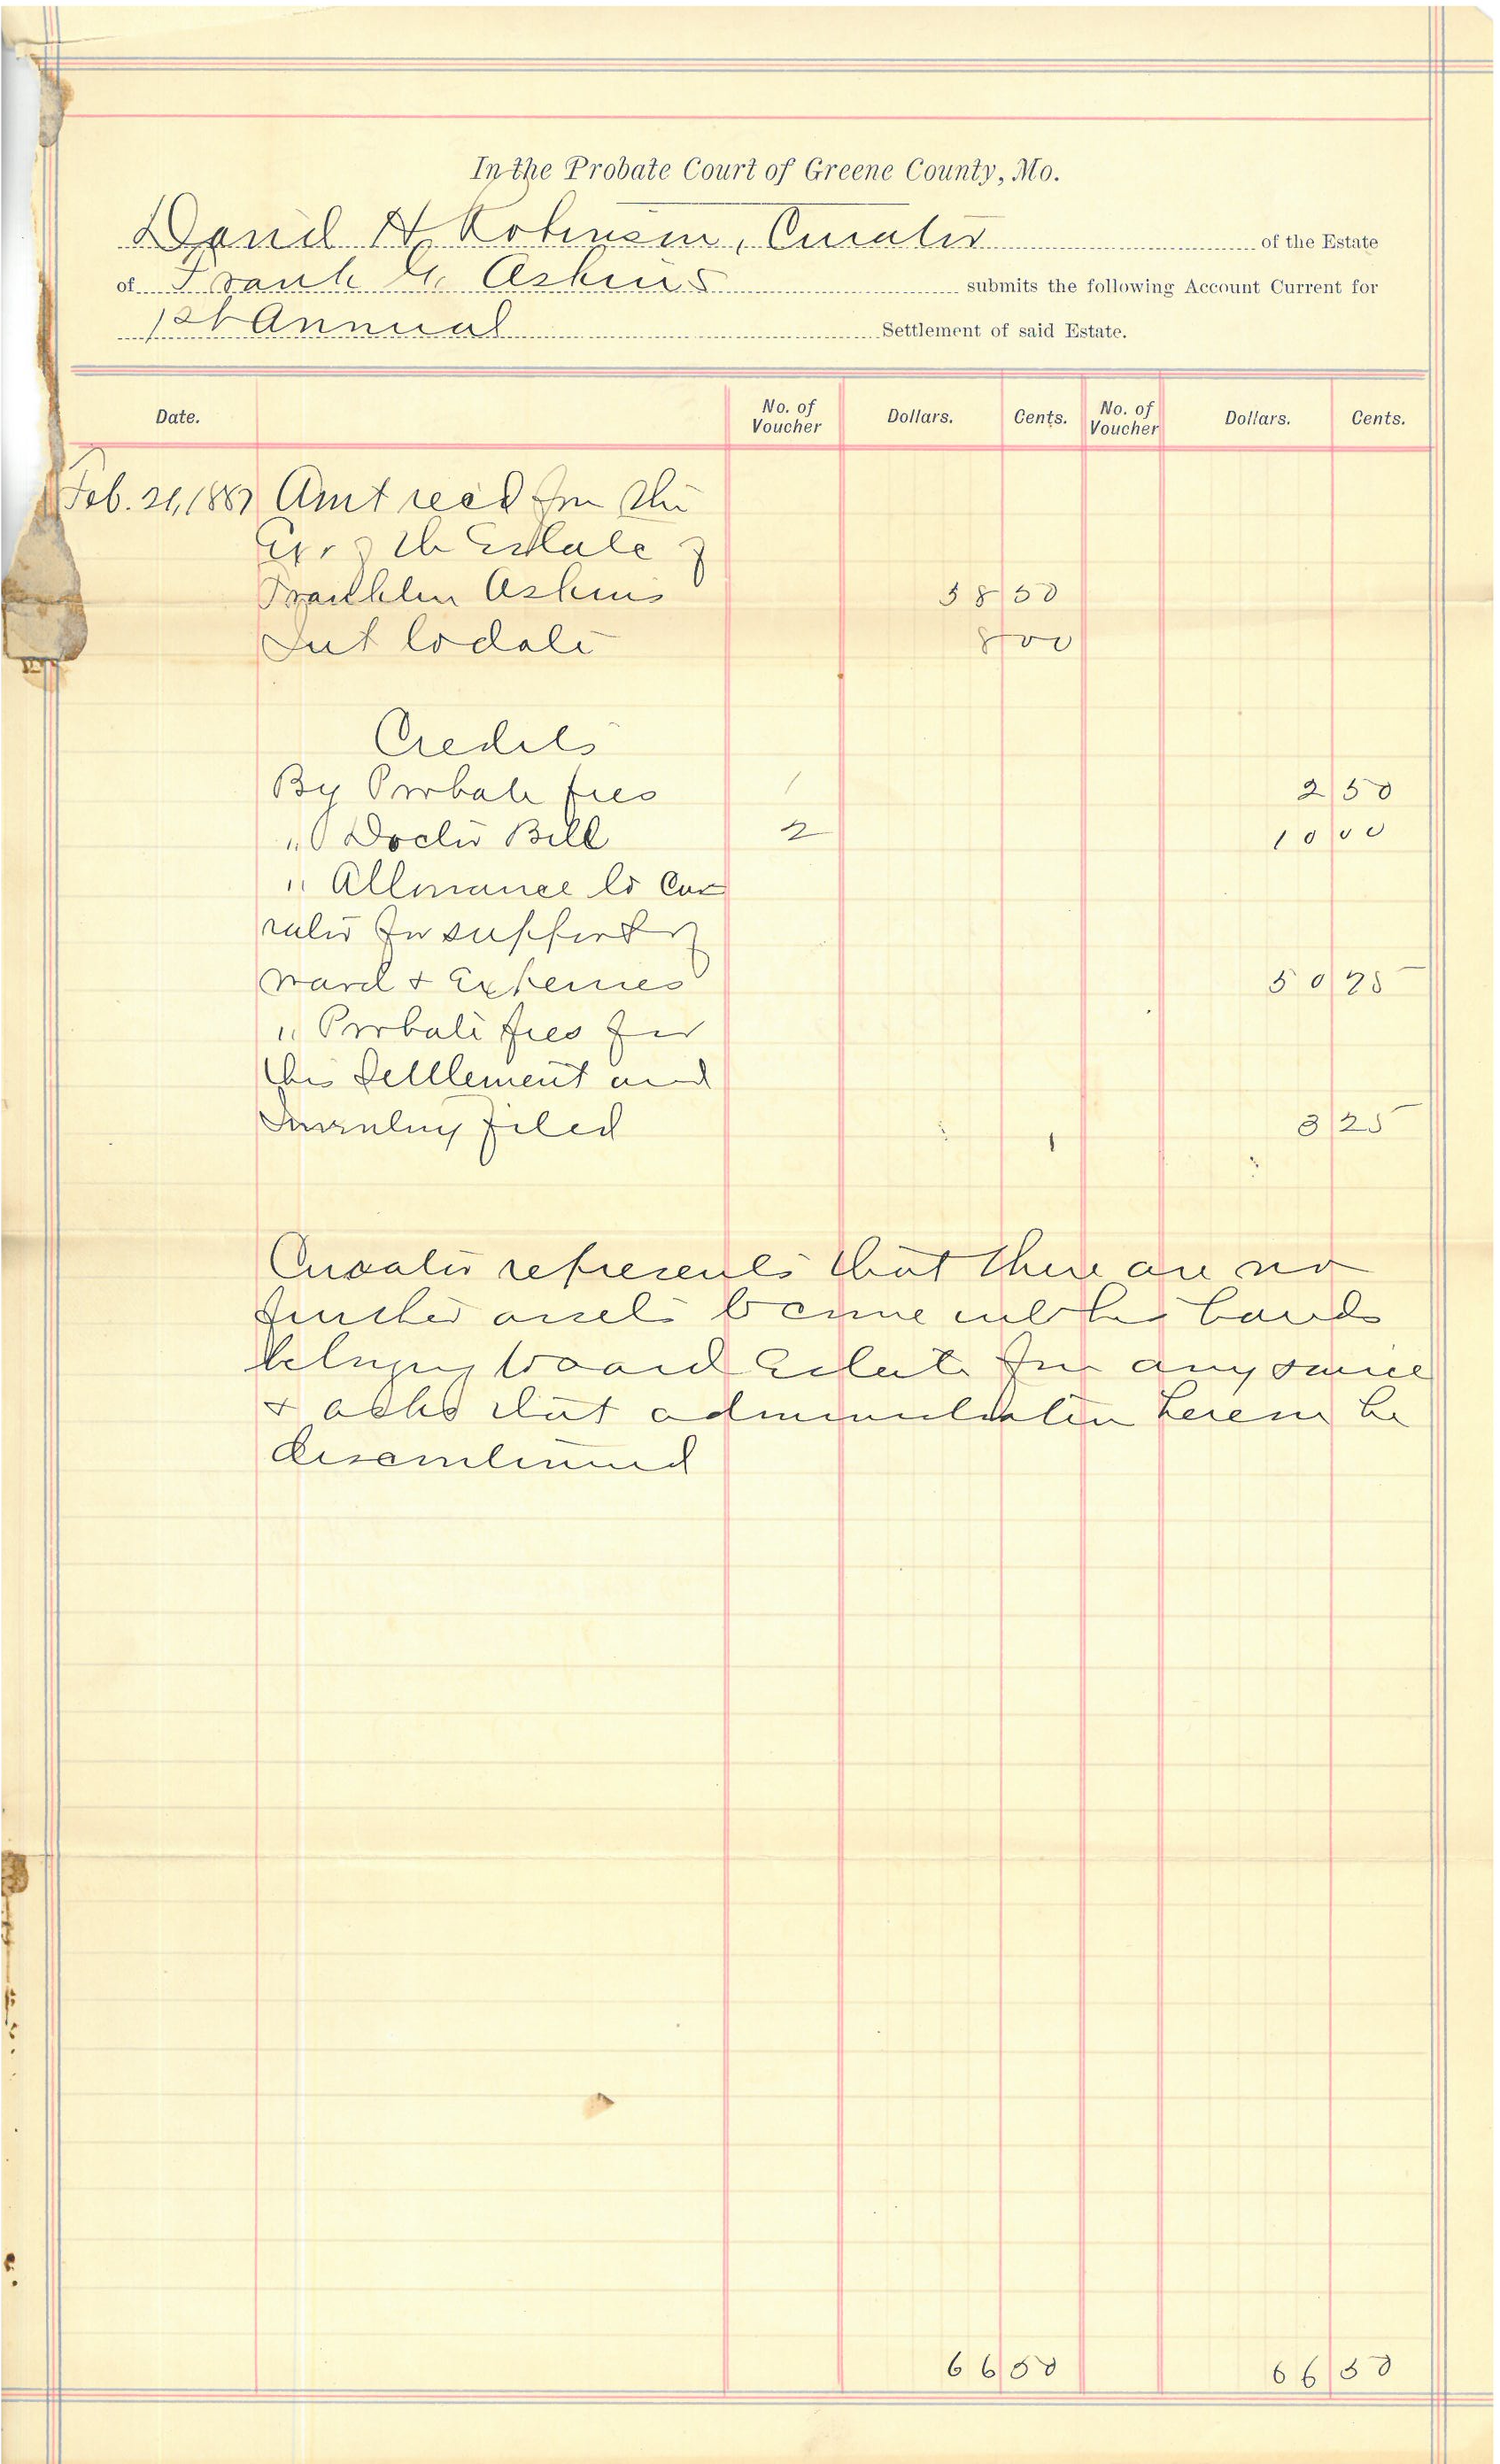 In the Probate Court of Greene County, Mo.
David H. Robinson, Curator of the Estate
of Frank G. Askins submits the following Account Current for
1st Annual Settlement of said Estate.
Date. No. of Voucher Dollars. Cents. No. of Voucher Dollars. Cents.
Feb. 21, 1887 Amt recd from the
Exr of the Estate of
Franklin Askins 58 50
Int to date 8 00
Credits
By Probate fees 1 2 50
" Doctor Bill 2 10 00
" Allowance to Cu-
rator for support of
ward & Expenses 50 75
" Probate fees for
this Settlement and
Inventory filed 3 25
Curator represents that there are no
further assets to come into his hands
belonging to said Estate from any source
& asks that administration herein be
discontinued
66 50 66 50